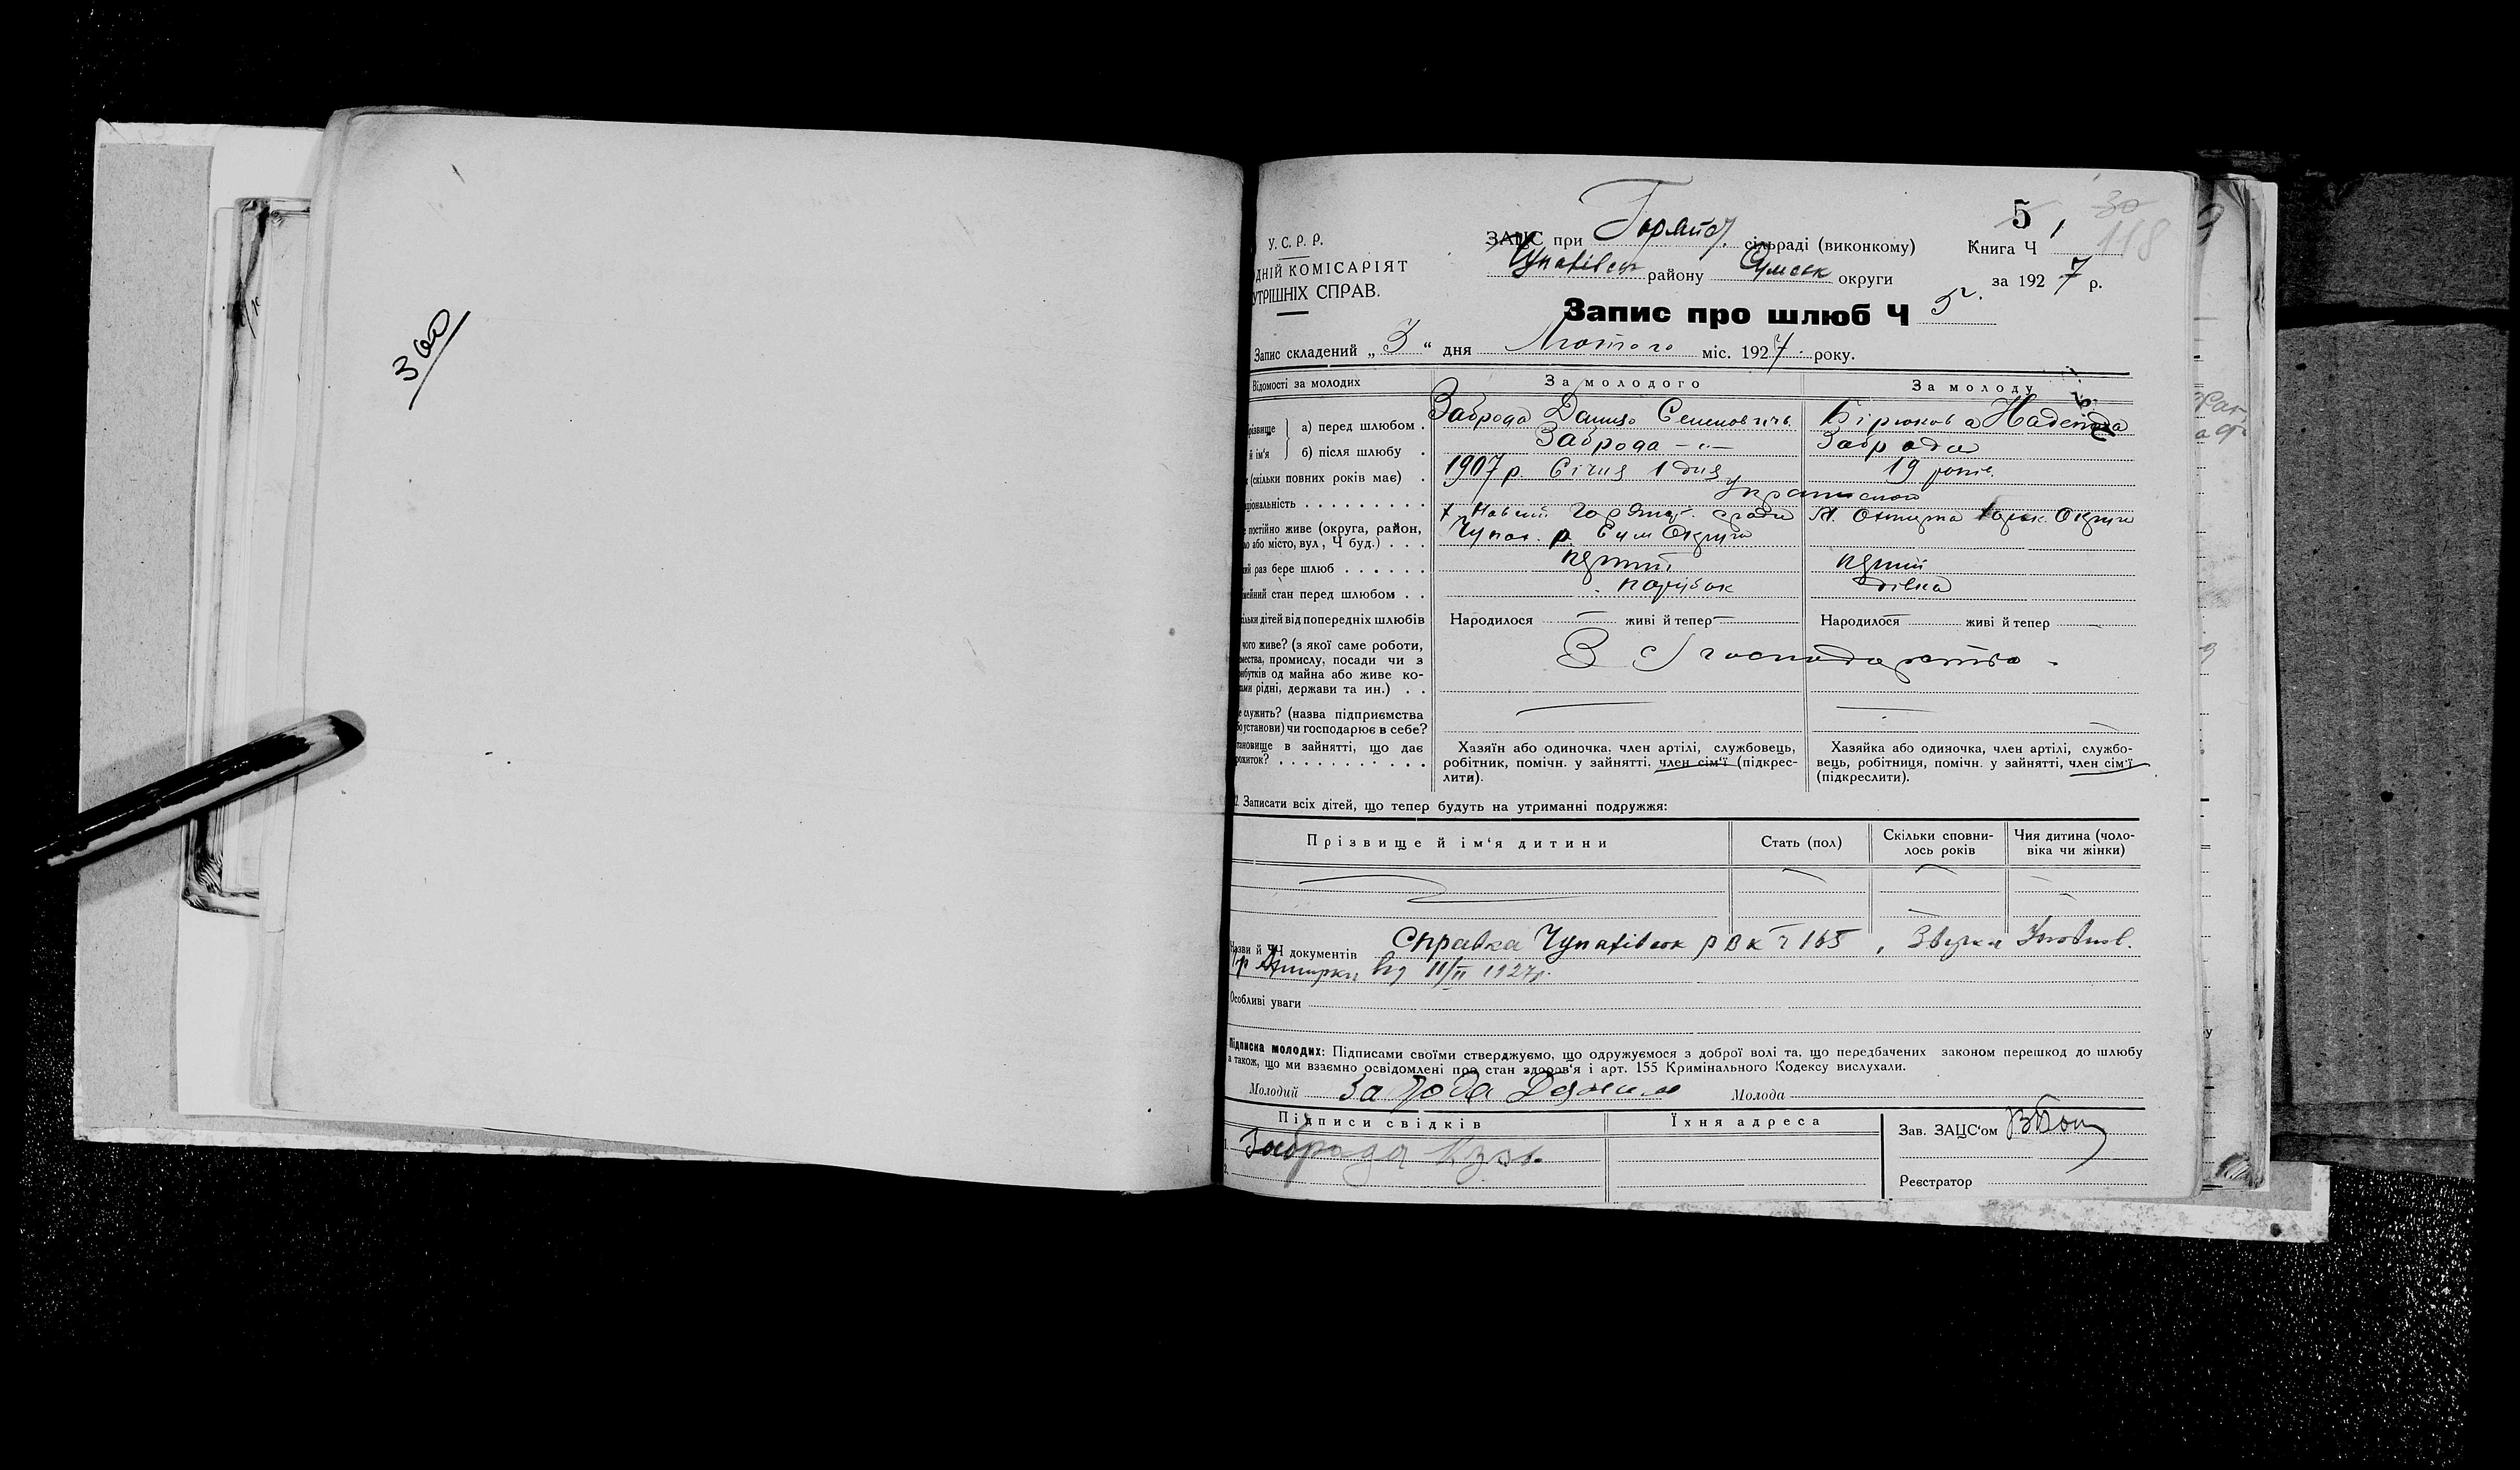 3
У. С. Р. Р.
ДНІЙ КОМІСАРІЯТ
УТРІШНІХ СПРАВ.
5
30
118
ЗАЦС при сільраді (виконкому) Книга Ч
Чупахівськ району Сумськ округи за 1927 р.
Запис про шлюб Ч 5.
Запис складений „ 3 “ дня Лютого міс. 1927 року.
Відомості за молодих
За молодого
За молоду
різвище й ім'я
а) перед шлюбом .
Заброда Данило Семенович
Бірюкова Надежда
б) після шлюбу .
Заброда — „ —
Заброда
(скільки повних років має) .
1907 р. Січня 1 дня
19 років.
ціональність . . . . . . . . .
постійно живе (округа, район,
о або місто, вул , Ч буд.) . . .
Чупах. р. Сум Округи
ий раз бере шлюб . . . . . .
мейний стан перед шлюбом . .
парубок
дівка
ільки дітей від попередніх шлюбів
Народилося — живі й тепер —
Народилося живі й тепер —
чого живе? (з якої саме роботи,
мества, промислу, посади чи з
ибутків од майна або живе ко-
ами рідні, держави та ин.) . .
З с/господарства
служить? (назва підприємства
бо установи) чи господарює в себе?
тановище в зайнятті, що дає
рожиток? . . . . . . . . . . .
Хазяїн або одиночка, член артілі, службовець,
робітник, помічн. у зайнятті, член сім'ї (підкрес-
лити).
Хазяйка або одиночка, член артілі, службо-
вець, робітниця, помічн. у зайнятті, член сім'ї
(підкреслити).
2. Записати всіх дітей, що тепер будуть на утриманні подружжя:
Прізвище й ім'я дитини
Стать (пол)
Скільки сповни-
лось років
Чия дитина (чоло-
віка чи жінки)
Назви й ЧЧ документів Справка Чупахівськ РВК ч 165 ,
від 11/II 1927р.
Особливі уваги
Підписка молодих: Підписами своїми стверджуємо, що одружуємося з доброї волі та, що передбачених законом перешкод до шлюбу
а також, що ми взаємно освідомлені про стан здоров'я і арт. 155 Кримінального Кодексу вислухали.
Молодий
Молода
Підписи свідків
Їхня адреса
Зав. ЗАЦС'ом
1. Заброда
2.
Реєстратор